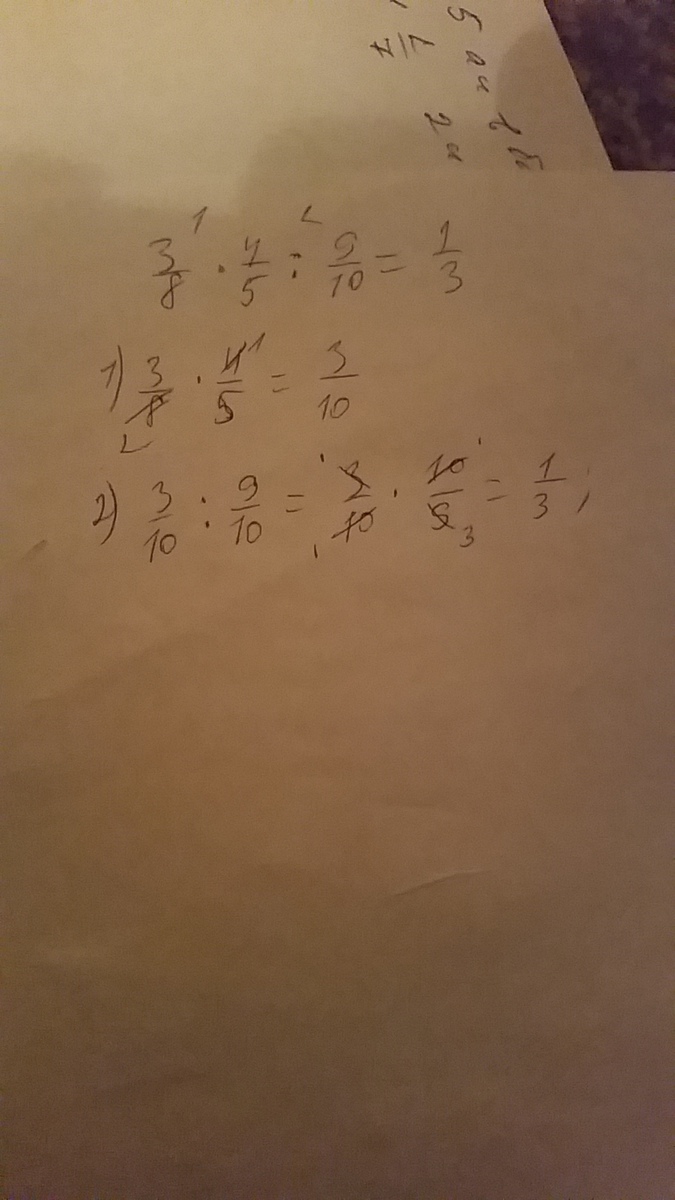 3/8 · 4/5 : 9/10 = 1/3
1) 3/8 · 4/5 = 3/10
2) 3/10 : 9/10 = 3/10 · 10/9 = 1/3;